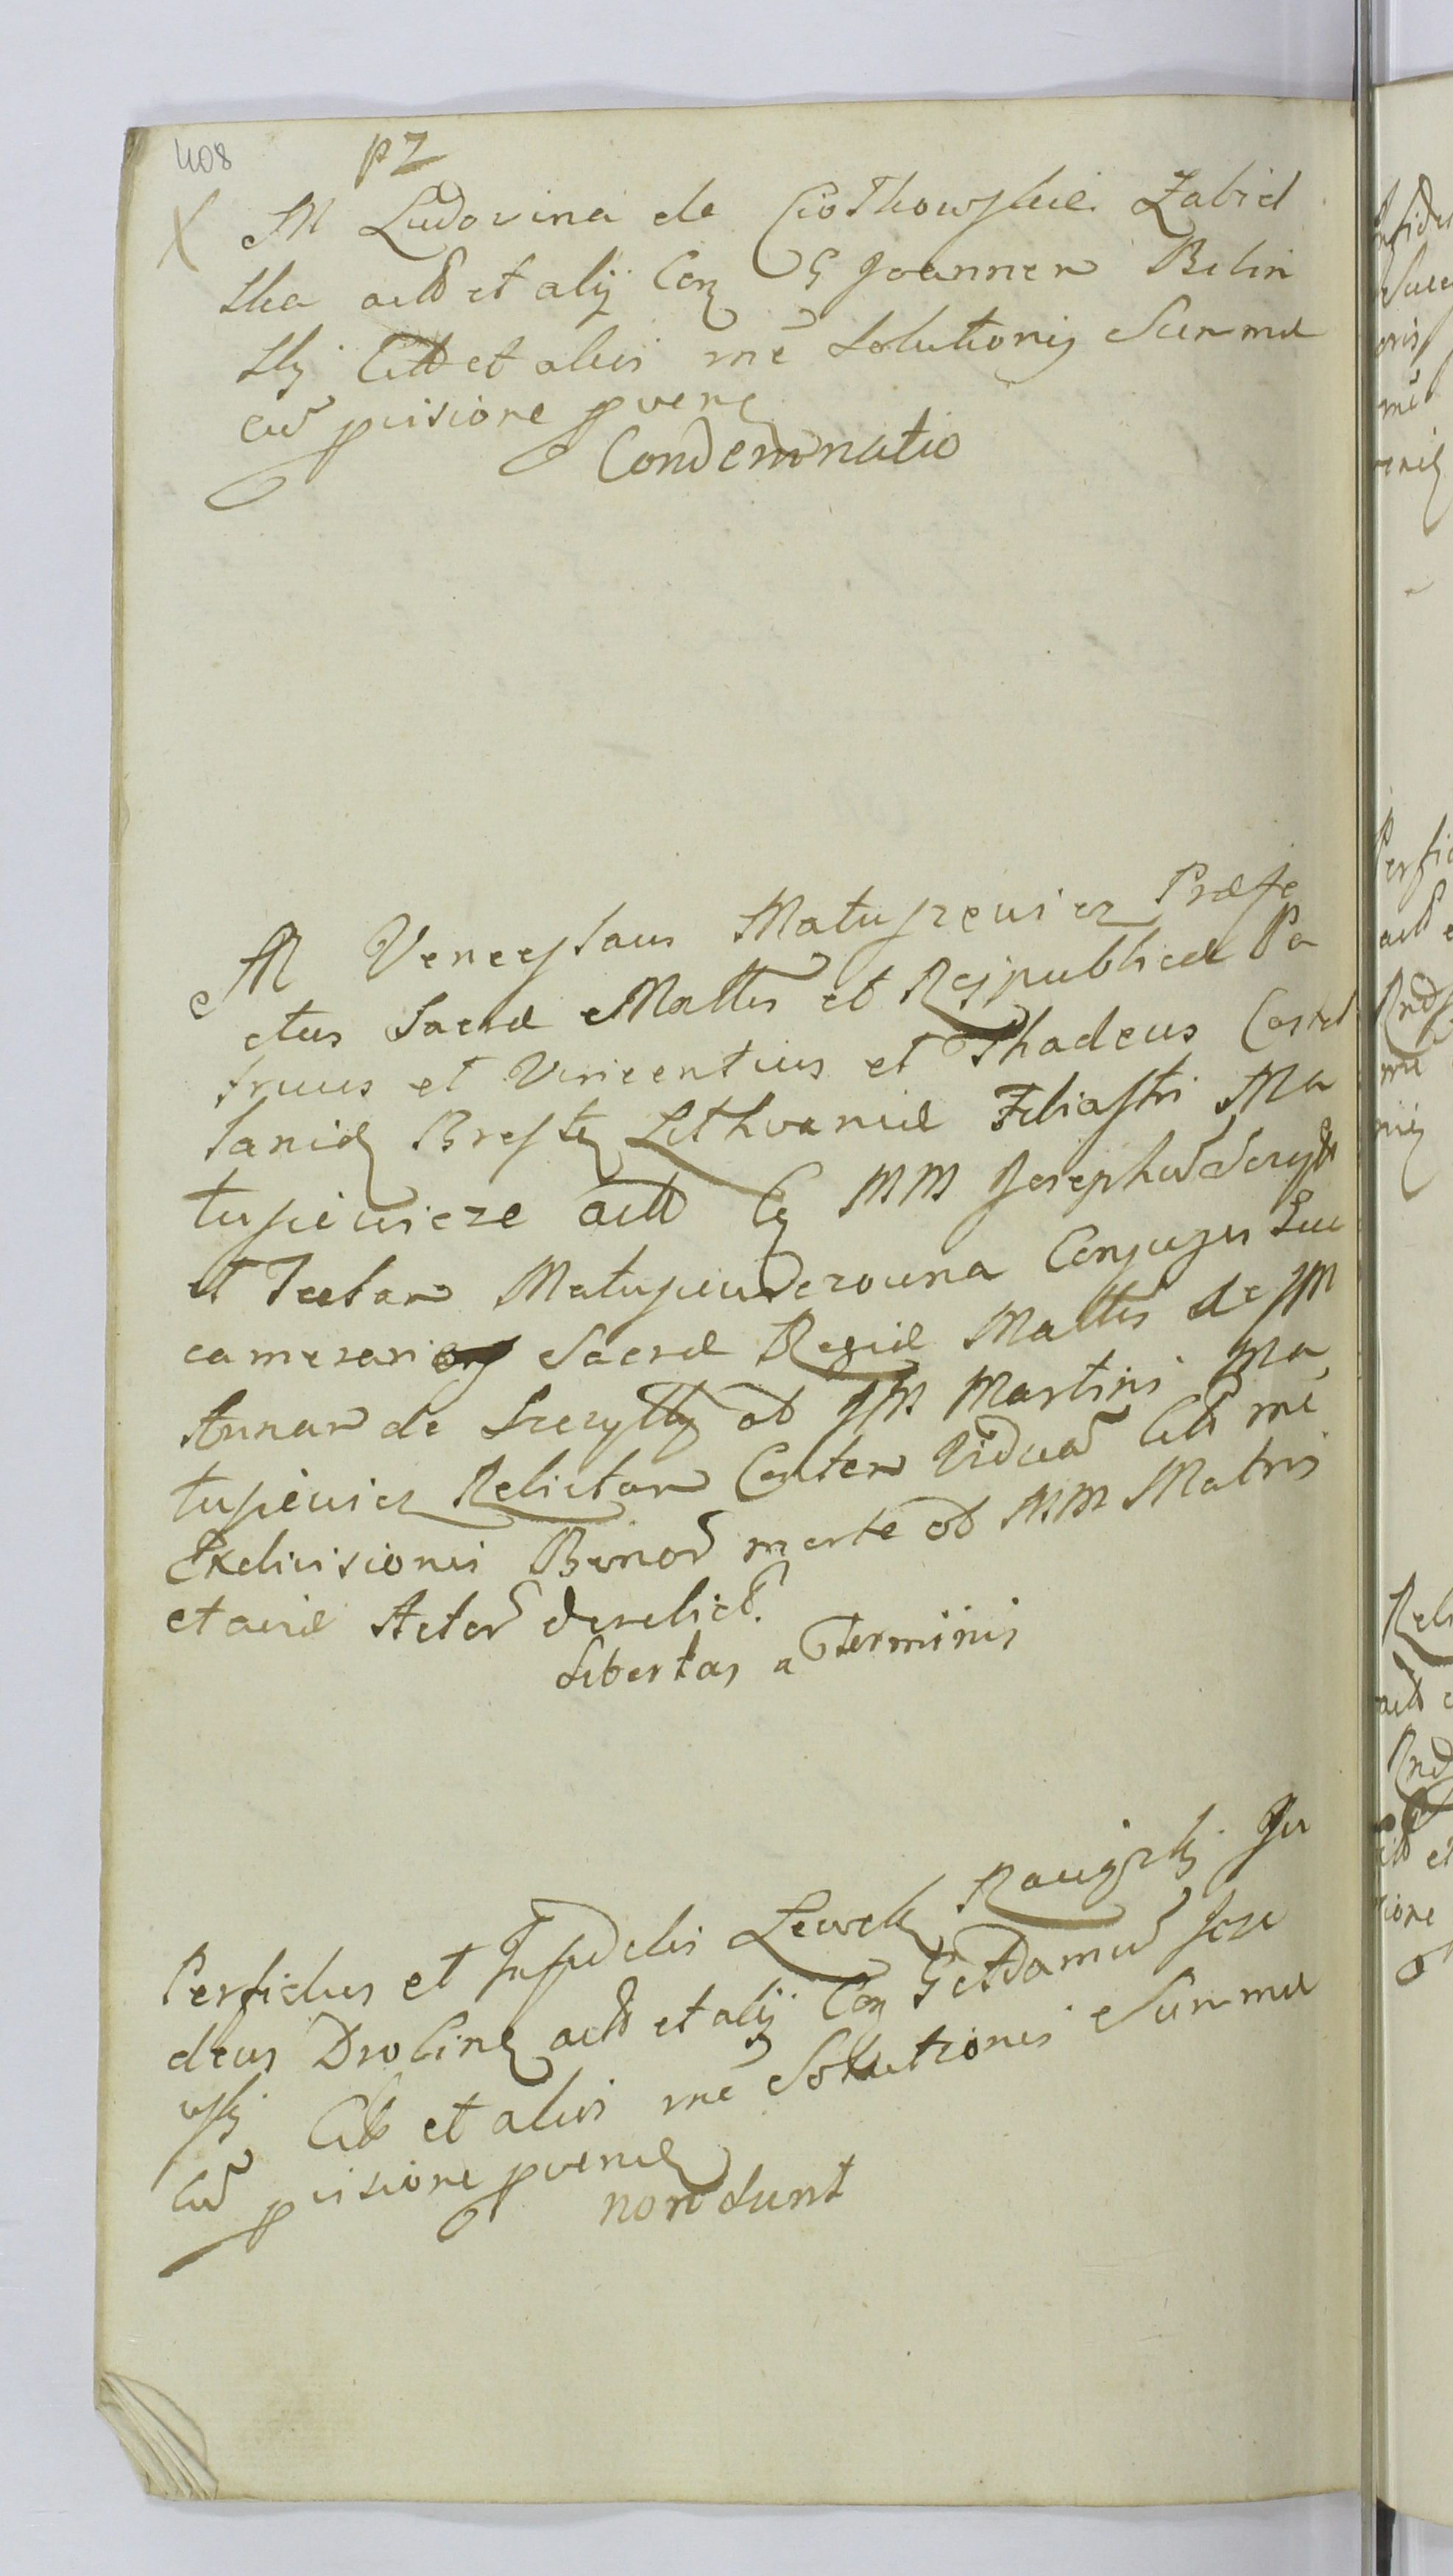 408
pz
X M Ludovina de Ciothowskie Zabiel
ska actt et alij Con G Joannem Bilin
sky Citt et alios me Solutionis Summae
cum pvisione pvene
Condemnatio
M Venceslaus Matuszewicz Praefe
ctus Sacrae Mattis et Reipublicae Pa
truus et Vincentius et Thadeus Castel
lanid Brest Lithvaniae Filiastri Ma
tusiewicze actt C MM Josephum Szczytt
et Teclam Matusiewiczowna Conjuges Suc
camerari Sacrae Regiae Mattis de JM
Annam de Szczytty ob JM Martini Ma
tusiewicz Relictam Conten Viduam Citt me
Exdivisionis Bonor morte ob MM Matris
et aviae Actor derelict.
Libertas a Terminis
Perfidus et Infidelis Lewek Rauszki Ju
deus Drolin actt et alij Con G Adamum Jeze
wski Citt et alios me Solutionis Summae
Cum pvisione pvenien
non sunt